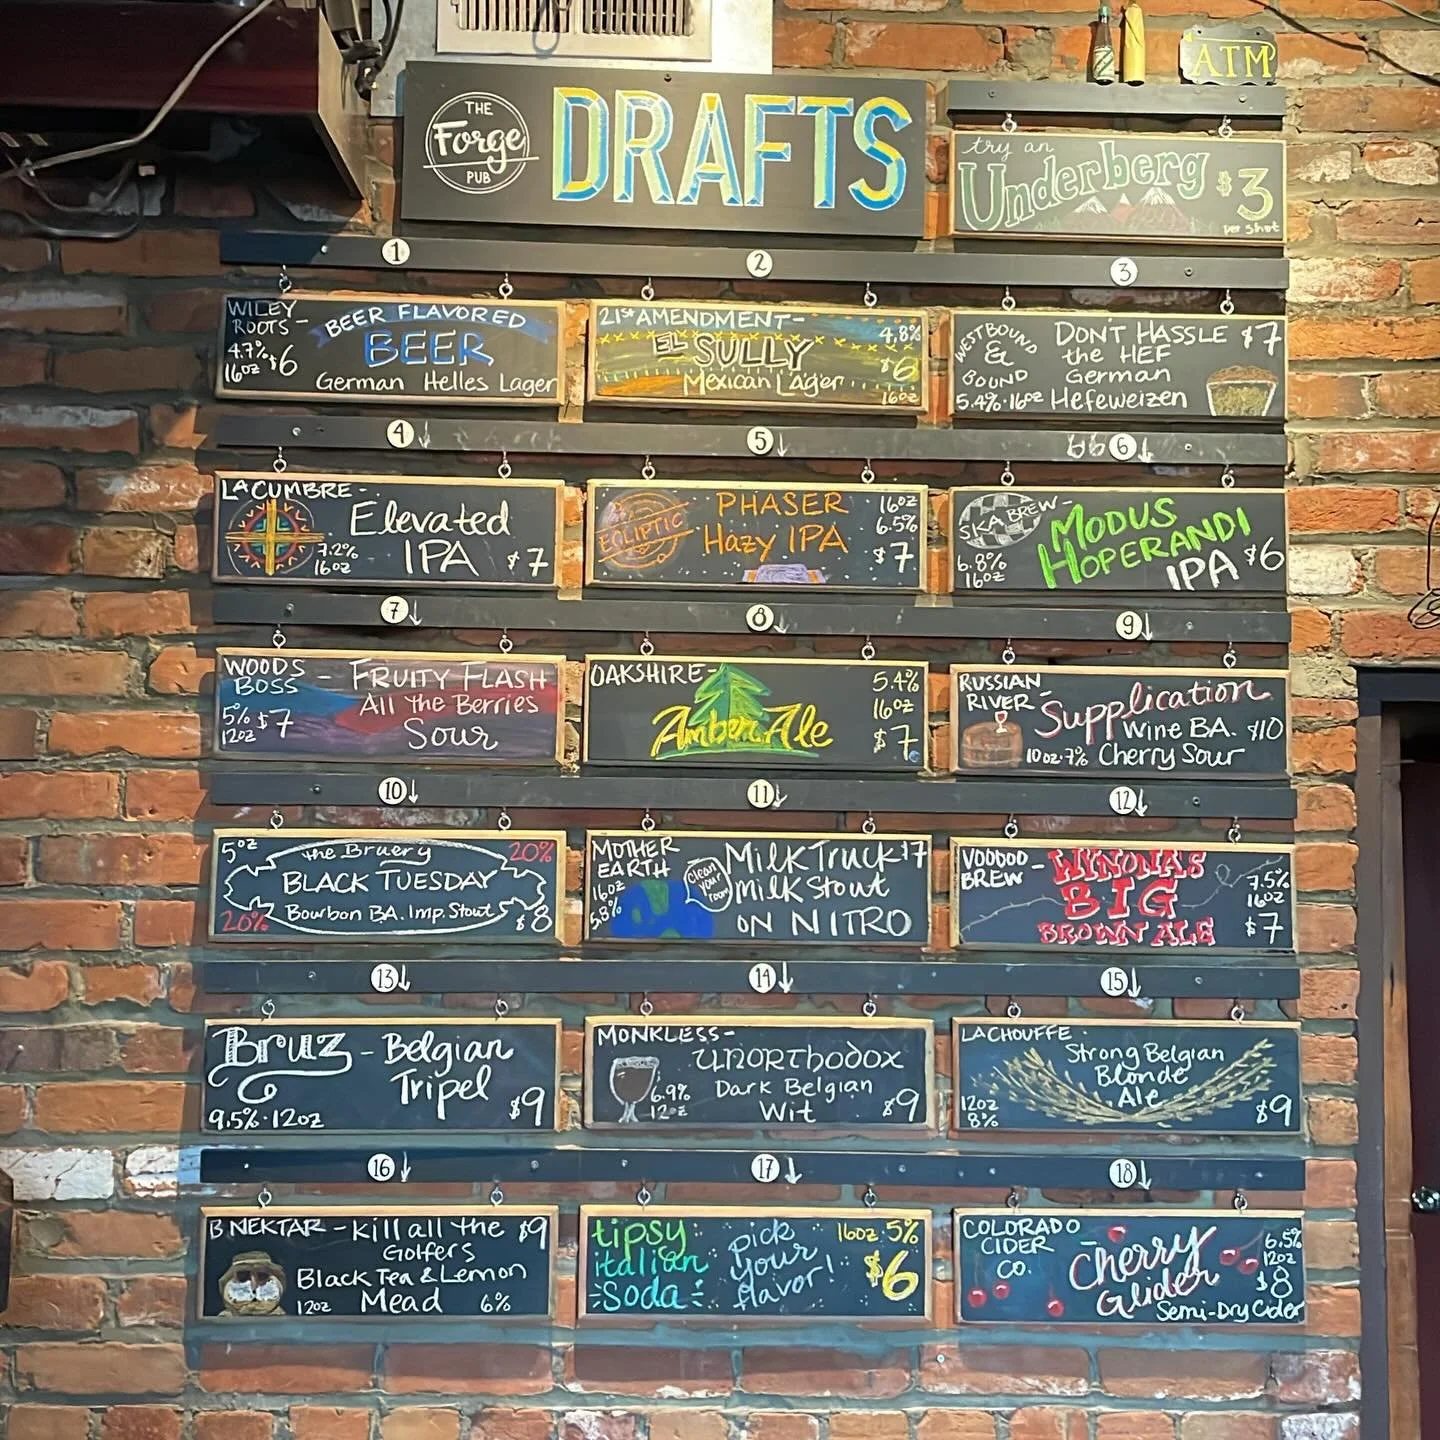 THE
Forge
PUB
DRAFTS
ATM
try an
Underberg
$3
per shot
1
2
3
WILEY
ROOTS -
4.7% $6
16oz
BEER FLAVORED
BEER
German Helles Lager
21st AMENDMENT -
4.8%
EL SULLY
$6
Mexican Lager
16oz
WESTBOUND
&
DOWN
BOUND
5.4% · 16oz
DON'T HASSLE $7
the HEF
German
Hefeweizen
4
5
6
LA CUMBRE -
Elevated
IPA
7.2%
16oz
$7
ECLIPTIC
PHASER
Hazy IPA
16oz
6.5%
$7
SKA BREW -
MODUS
HOPERANDI
IPA $6
6.8%
16oz
7
8
9
WOODS
BOSS -
5% $7
12oz
FRUITY FLASH
All the Berries
Sour
OAKSHIRE -
Amber Ale
5.4%
16oz
$7
RUSSIAN
RIVER -
Supplication
Wine BA. $10
10oz · 7% Cherry Sour
10
11
12
5oz
the Bruery
20%
BLACK TUESDAY
Bourbon BA. Imp. Stout
20%
$8
MOTHER
EARTH
16oz
5.8%
clean
your
room
Milk Truck $7
milk stout
ON NITRO
VOODOO
BREW -
WYNONA'S
BIG
BROWN ALE
7.5%
16oz
$7
13
14
15
Bruz - Belgian
Tripel
9.5% · 12oz
$9
MONKLESS -
UNORTHODOX
Dark Belgian
Wit
6.9%
12oz
$9
LACHOUFFE -
Strong Belgian
Blonde
Ale
12oz
8%
$9
16
17
18
B NEKTAR - Kill all the $9
Golfers
Black Tea & Lemon
12oz Mead 6%
tipsy
italian
Soda
pick
your
flavor!
16oz 5%
$6
COLORADO
CIDER
CO.
- Cherry
Glider
6.5%
12oz
$8
Semi-Dry Cider